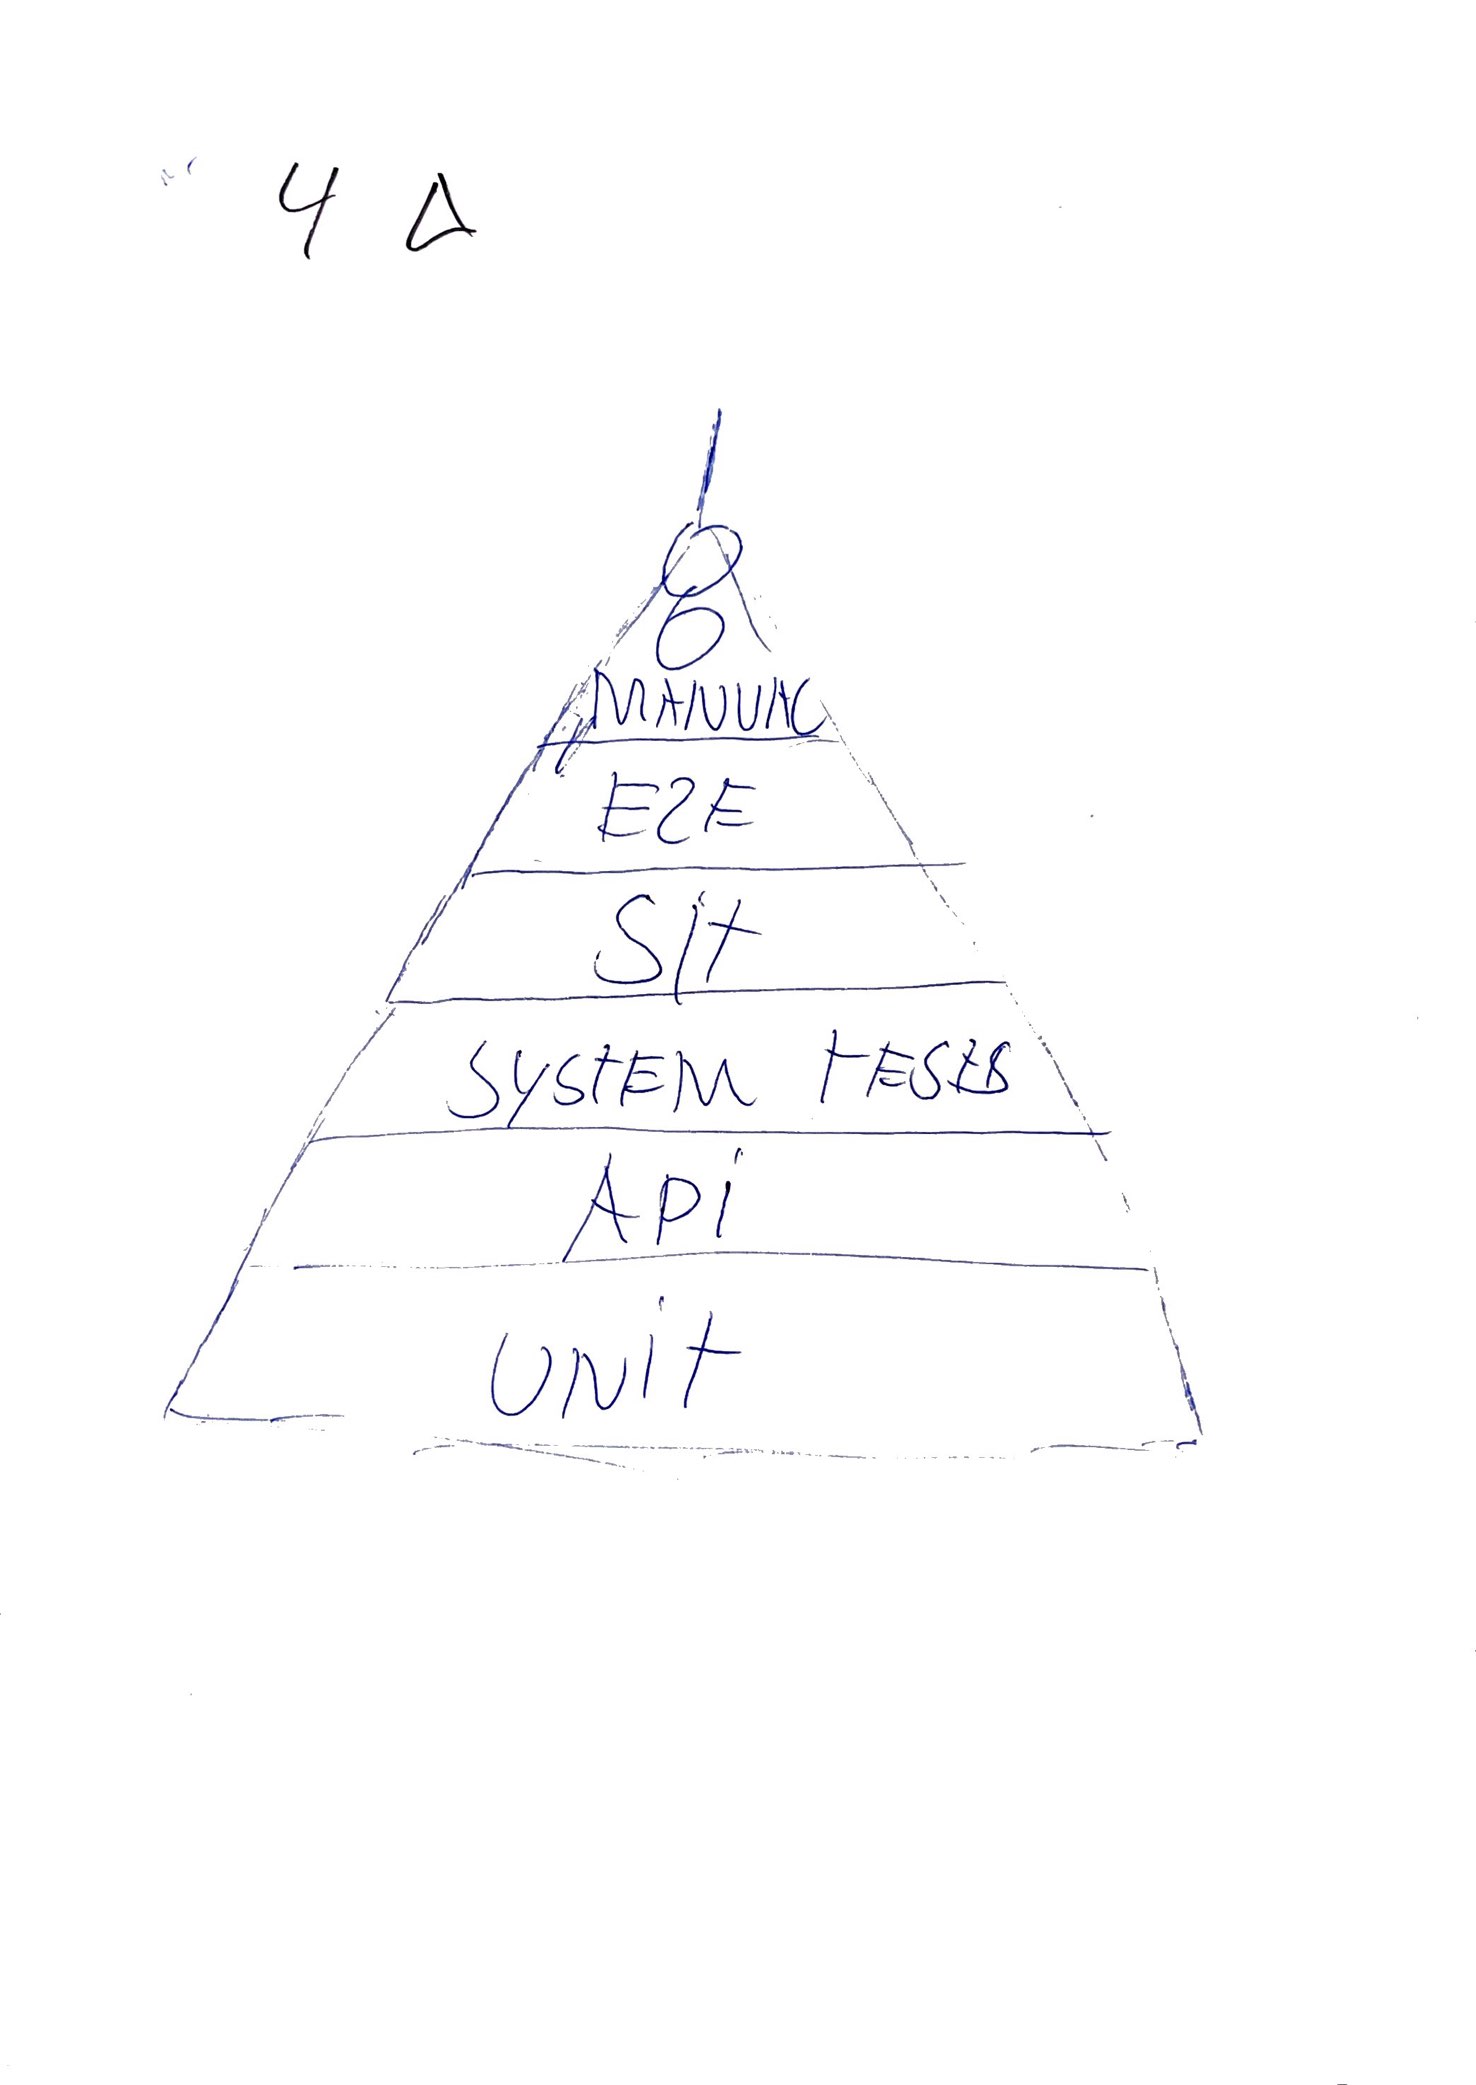 4 Δ
6
MANUAL
E2E
Sit
SYStEM tESts
APi
UNit